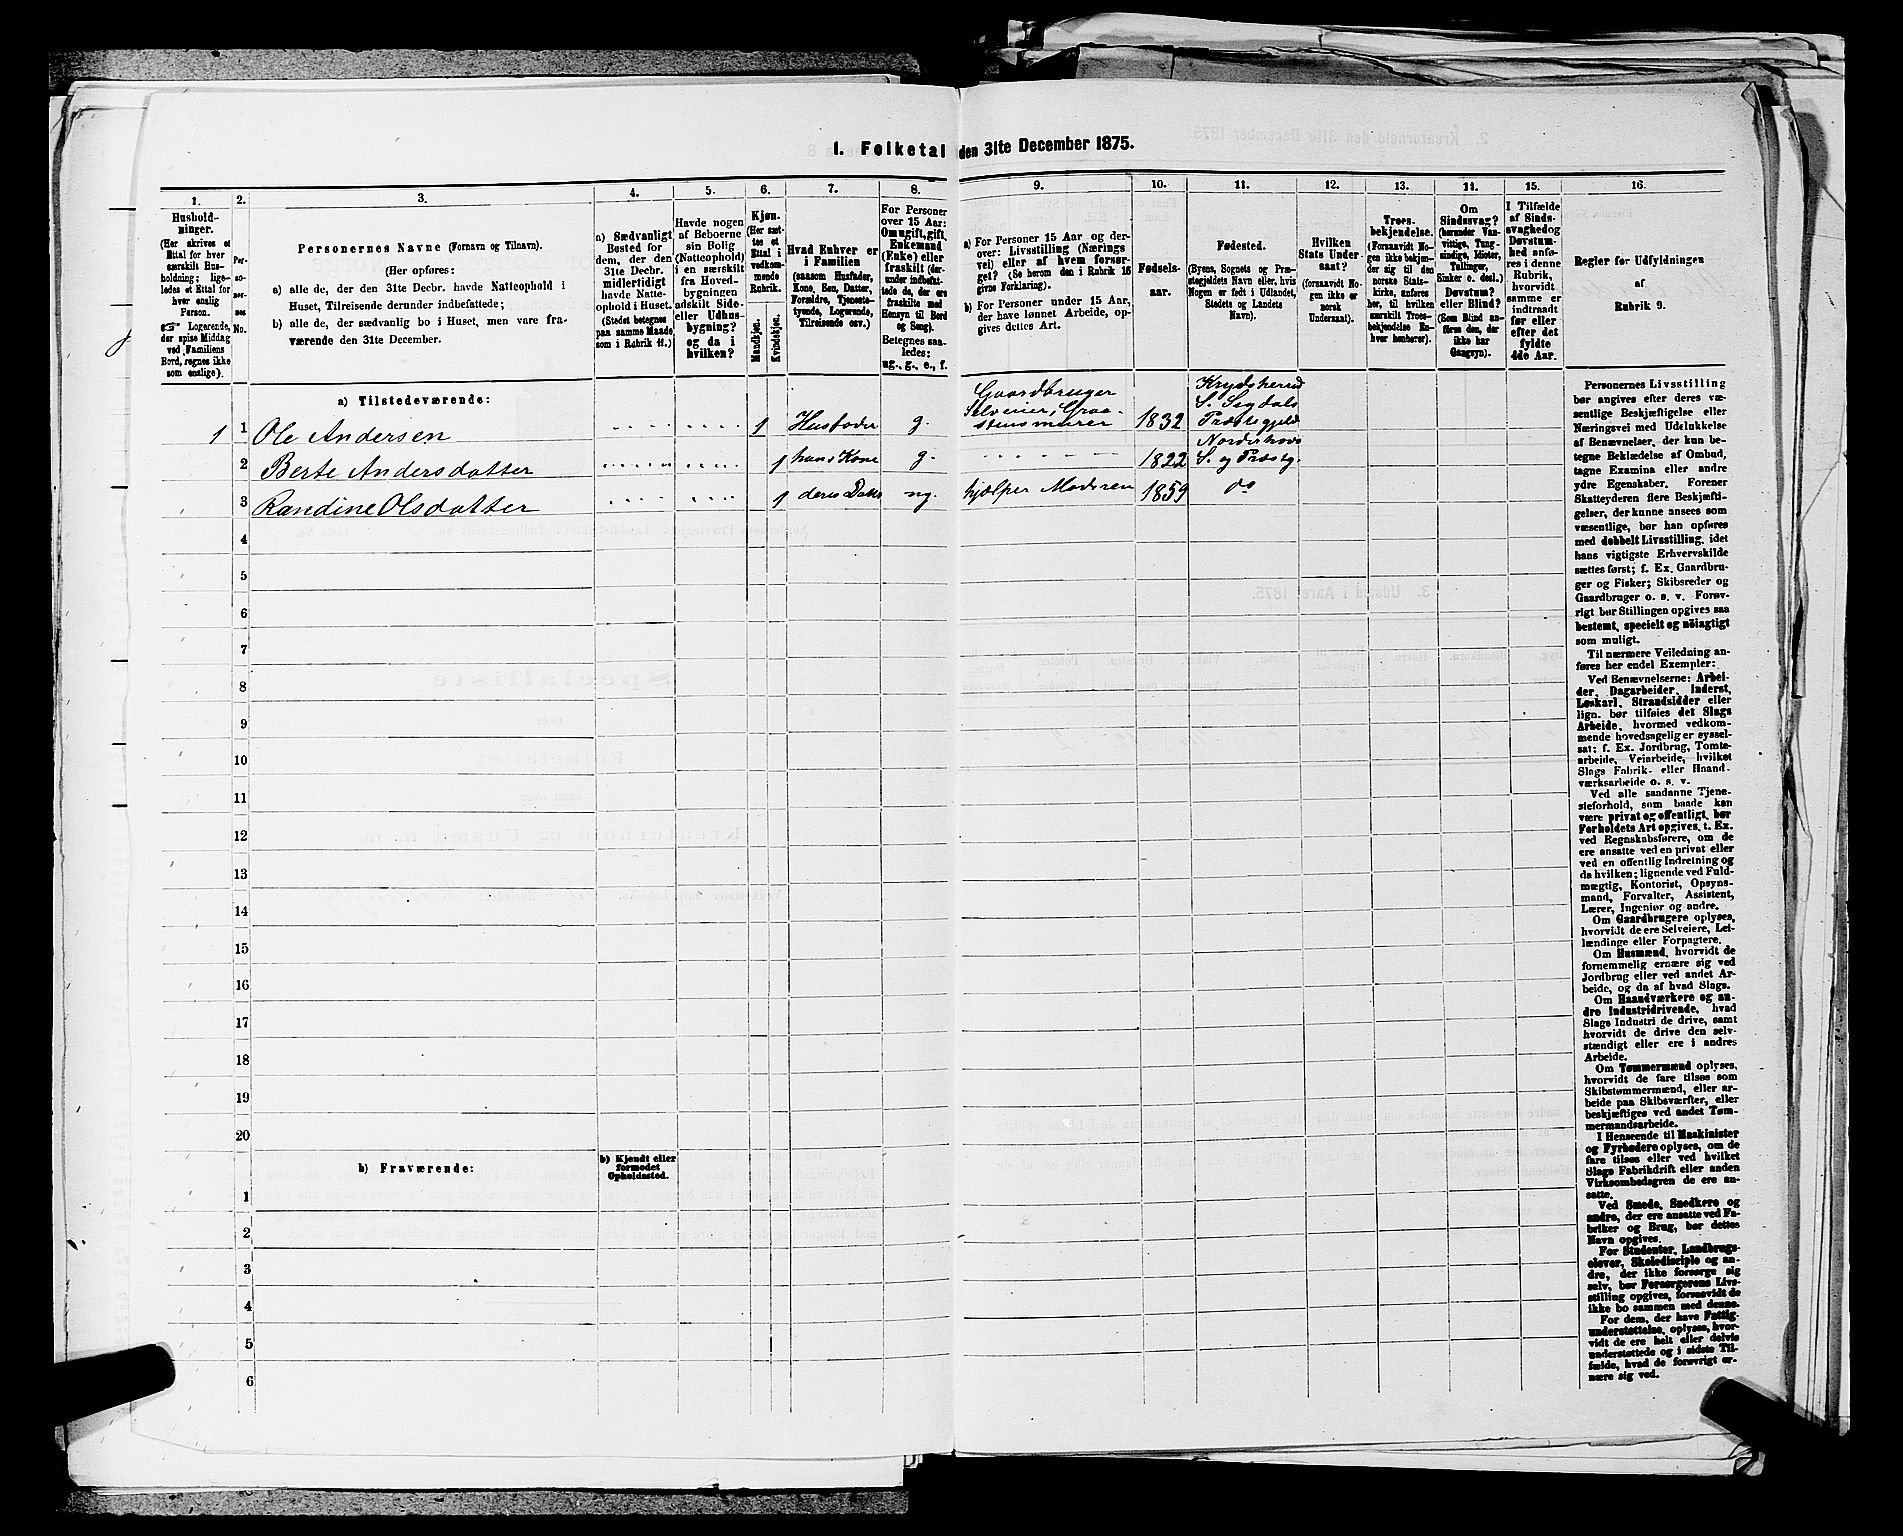 1. Folketal den 31te December 1875.
1.
2.
3.
4.
5.
6.
7.
8.
9.
10.
11.
12.
13.
14.
15.
16.
Hushold-
ninger.
(Her skrives et
Ettal for hver
særskilt Hus-
holdning; lige-
ledes et Ettal for
hver enslig
Person.
☞ Logerende,
der spise Middag
ved Familiens
Bord, regnes ikke
som enslige).
Per-
so-
ner-
nes
No.
Personernes Navne (Fornavn og Tilnavn).
(Her opføres:
a) alle de, der den 31te Decbr. havde Natteophold i
Huset, Tilreisende derunder indbefattede;
b) alle de, der sædvanlig bo i Huset, men vare fra-
værende den 31te December.
a) Sædvanligt
Bosted for
dem, der den
31te Decbr.
midlertidigt
havde Natte-
ophold i Huset.
(Stedet betegnes
paa samme Maade
som i Rubrik 11.)
Havde nogen
af Beboerne
sin Bolig
(Natteophold)
i en særskilt
fra Hoved-
bygningen
adskilt Side-
eller Udhus-
bygning?
og da i
hvilken?
Kjøn.
(Her sæt-
tes et
Ettal i
vedkom-
mende
Rubrik.
Mandkjøn.
Kvindekjøn.
Hvad Enhver er
i Familien
(saasom Husfader,
Kone, Søn, Datter,
Forældre, Tjeneste-
tyende, Logerende,
Tilreisende osv.)
For Personer
over 15 Aar:
Om ugift, gift,
Enkemand
(Enke) eller
fraskilt (der-
under indbefat-
tede de, der ere
fraskilte med
Hensyn til Bord
og Seng).
Betegnes saa-
ledes:
ug., g., e., f.
a) For Personer 15 Aar og der-
over: Livsstilling (Nærings
vei) eller af hvem forsør-
get? (Se herom den i Rubrik 16
givne Forklaring).
b) For Personer under 15 Aar,
der have lønnet Arbeide, op-
gives dettes Art.
Fødsels-
aar.
Fødested.
(Byens, Sognets og Præ-
stegjeldets Navn eller, hvis
Nogen er født i Udlandet,
Stedets og Landets
Navn).
Hvilken
Stats Under-
saat?
(forsaavidt No-
gen ikke er
norsk
Undersaat).
Troes-
bekjendelse.
(Forsaavidt No-
gen ikke bekjen-
der sig til den
norske Stats-
kirke, anføres
her, til hvilken
særskilt Troes-
bekjendelse En-
hver henhører).
Om
Sindssvag?
(herunder Van-
vittige, Tung-
sindige, Idioter,
Tullinger,
Sinker o. desl.)
Døvstum?
eller Blind?
(Som Blind an-
føres den, der
ikke har
Gangsyn).
I Tilfælde
af Sinds-
svaghed og
Døvstum-
hed anfø-
res i denne
Rubrik,
hvorvidt
samme er
indtraadt
før eller
efter det
fyldte
4de Aar.
Regler for Udfyldningen
af
Rubrik 9.
a) Tilstedeværende:
1 1 Ole Andersen 1 Husfader g. Gaardbruger Selveier, Graa- stensmurer 1832 Krydsherred S. Sigdals Præstegjeld
2 Berte Andersdatter 1 hans Kone g. 1822 Norderhovs S. og Præstg.
3 Randine Olsdatter 1 deres Datter ug. hjælper Moderen 1859 do
4
5
6
7
8
9
10
11
12
13
14
15
16
17
18
19
20
b) Fraværende:
b) Kjendt eller
formodet
Opholdssted.
1
2
3
4
5
6
Personernes Livsstilling
bør angives efter deres væ-
sentlige Beskjæftigelse eller
Næringsvei med Udelukkelse
af Benævnelser, der kun be-
tegne Beklædelse af Ombud,
tagne Examina eller andre
ydre Egenskaber. Forener
Skatteyderen flere Beskjæfti-
gelser, der kunne ansees som
væsentlige, bør han opføres
med dobbelt Livsstilling, idet
hans vigtigste Erhvervskilde
sættes først; f. Ex. Gaardbru-
ger og Fisker; Skibsreder og
Gaardbruger o. s. v. Forøv-
rigt bør Stillingen opgives saa
bestemt, specielt og nöiagtigt
som muligt.
Til nærmere Veiledning an-
føres her endel Exempler:
Ved Benævnelserne: Arbei-
der, Dagarbeider, Inderst,
Løskarl, Strandsidder eller
lign. bør tilføies det Slags
Arbeide, hvormed vedkom-
mende hovedsagelig er syssel-
sat; f. Ex. Jordbrug, Tomte-
arbeide, Veiarbeide, hvilket
Slags Fabrik- eller Haand-
værksarbeide o. s. v.
Ved alle saadanne Tjene-
steforhold, som baade kan
være privat og offentligt, bør
Forholdets Art opgives, t. Ex.
ved Regnskabsførere, om de
ere ansatte ved en privat eller
ved en offentlig Indretning og
da hvilken; lignende ved Fuld-
mægtig, Kontorist, Opsyns-
mand, Forvalter, Assistent,
Lærer, Ingeniør og andre.
Om Gaardbrugere oplyses,
hvorvidt de ere Selveiere, Lei-
lændinge eller Forpagtere.
Om Husmænd, hvorvidt de
fornemmelig ernære sig ved
Jordbrug eller ved andet Ar-
beide, og da af hvad Slags.
Om Haandværkere og an-
dre Industridrivende, hvad
Slags Industri de drive, samt
hvorvidt de drive den selv-
stændigt eller ere i andres
Arbeide.
Om Tømmermænd oplyses,
hvorvidt de fare tilsøs som
Skibstømmermænd, eller ar-
beide paa Skibsværfter, eller
beskjæftiges ved andet Tøm-
mermandsarbeide.
I Henseende til Maskinister
og Fyrbødere oplyses, om de
fare tilsøs eller ved hvilket
Slags Fabrikdrift eller anden
Virksomhedsgren de ere an-
satte.
Ved Smede, Snedkere og
andre, der ere ansatte ved Fa-
briker og Brug, bør dettes
Navn opgives.
For Studenter, Landbrugs-
elever, Skoledisciple og an-
dre, der ikke forsørge sig
selv, bør Forsørgerens Livs-
stilling opgives, forsaavidt de
ikke bo sammen med denne.
For dem, der have Fattig-
understøttelse, oplyses, hvor-
vidt de ere helt eller delvis
understøttede og i sidste Til-
fælde, hvad de forøvrigt er-
nære sig ved.